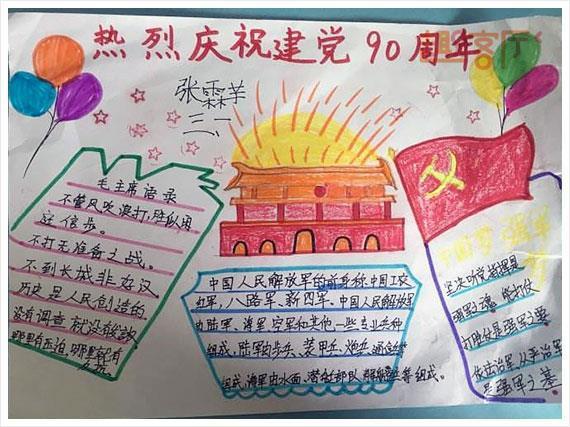 热烈庆祝建党90周年
张霖羊
三一
毛主席语录
不管风吹浪打,胜似闲
庭信步。
不打无准备之战。
不到长城非好汉
历史是人民创造的
没有调查就没有发
那里有压迫,哪里就有
中国人民解放军的前身称:中国工农
红军,八路军、新四军、中国人民解放军
由陆军、海军、空军和其他一些专业兵种
组成,陆军由步兵、装甲兵、炮兵、通信等
组成,海军由水面、潜艇部队、等组成。
中国梦 强军
坚决听党指挥是
强军之魂 能打仗
打胜仗是强军之要
依法治军、从严治军
是强军之基